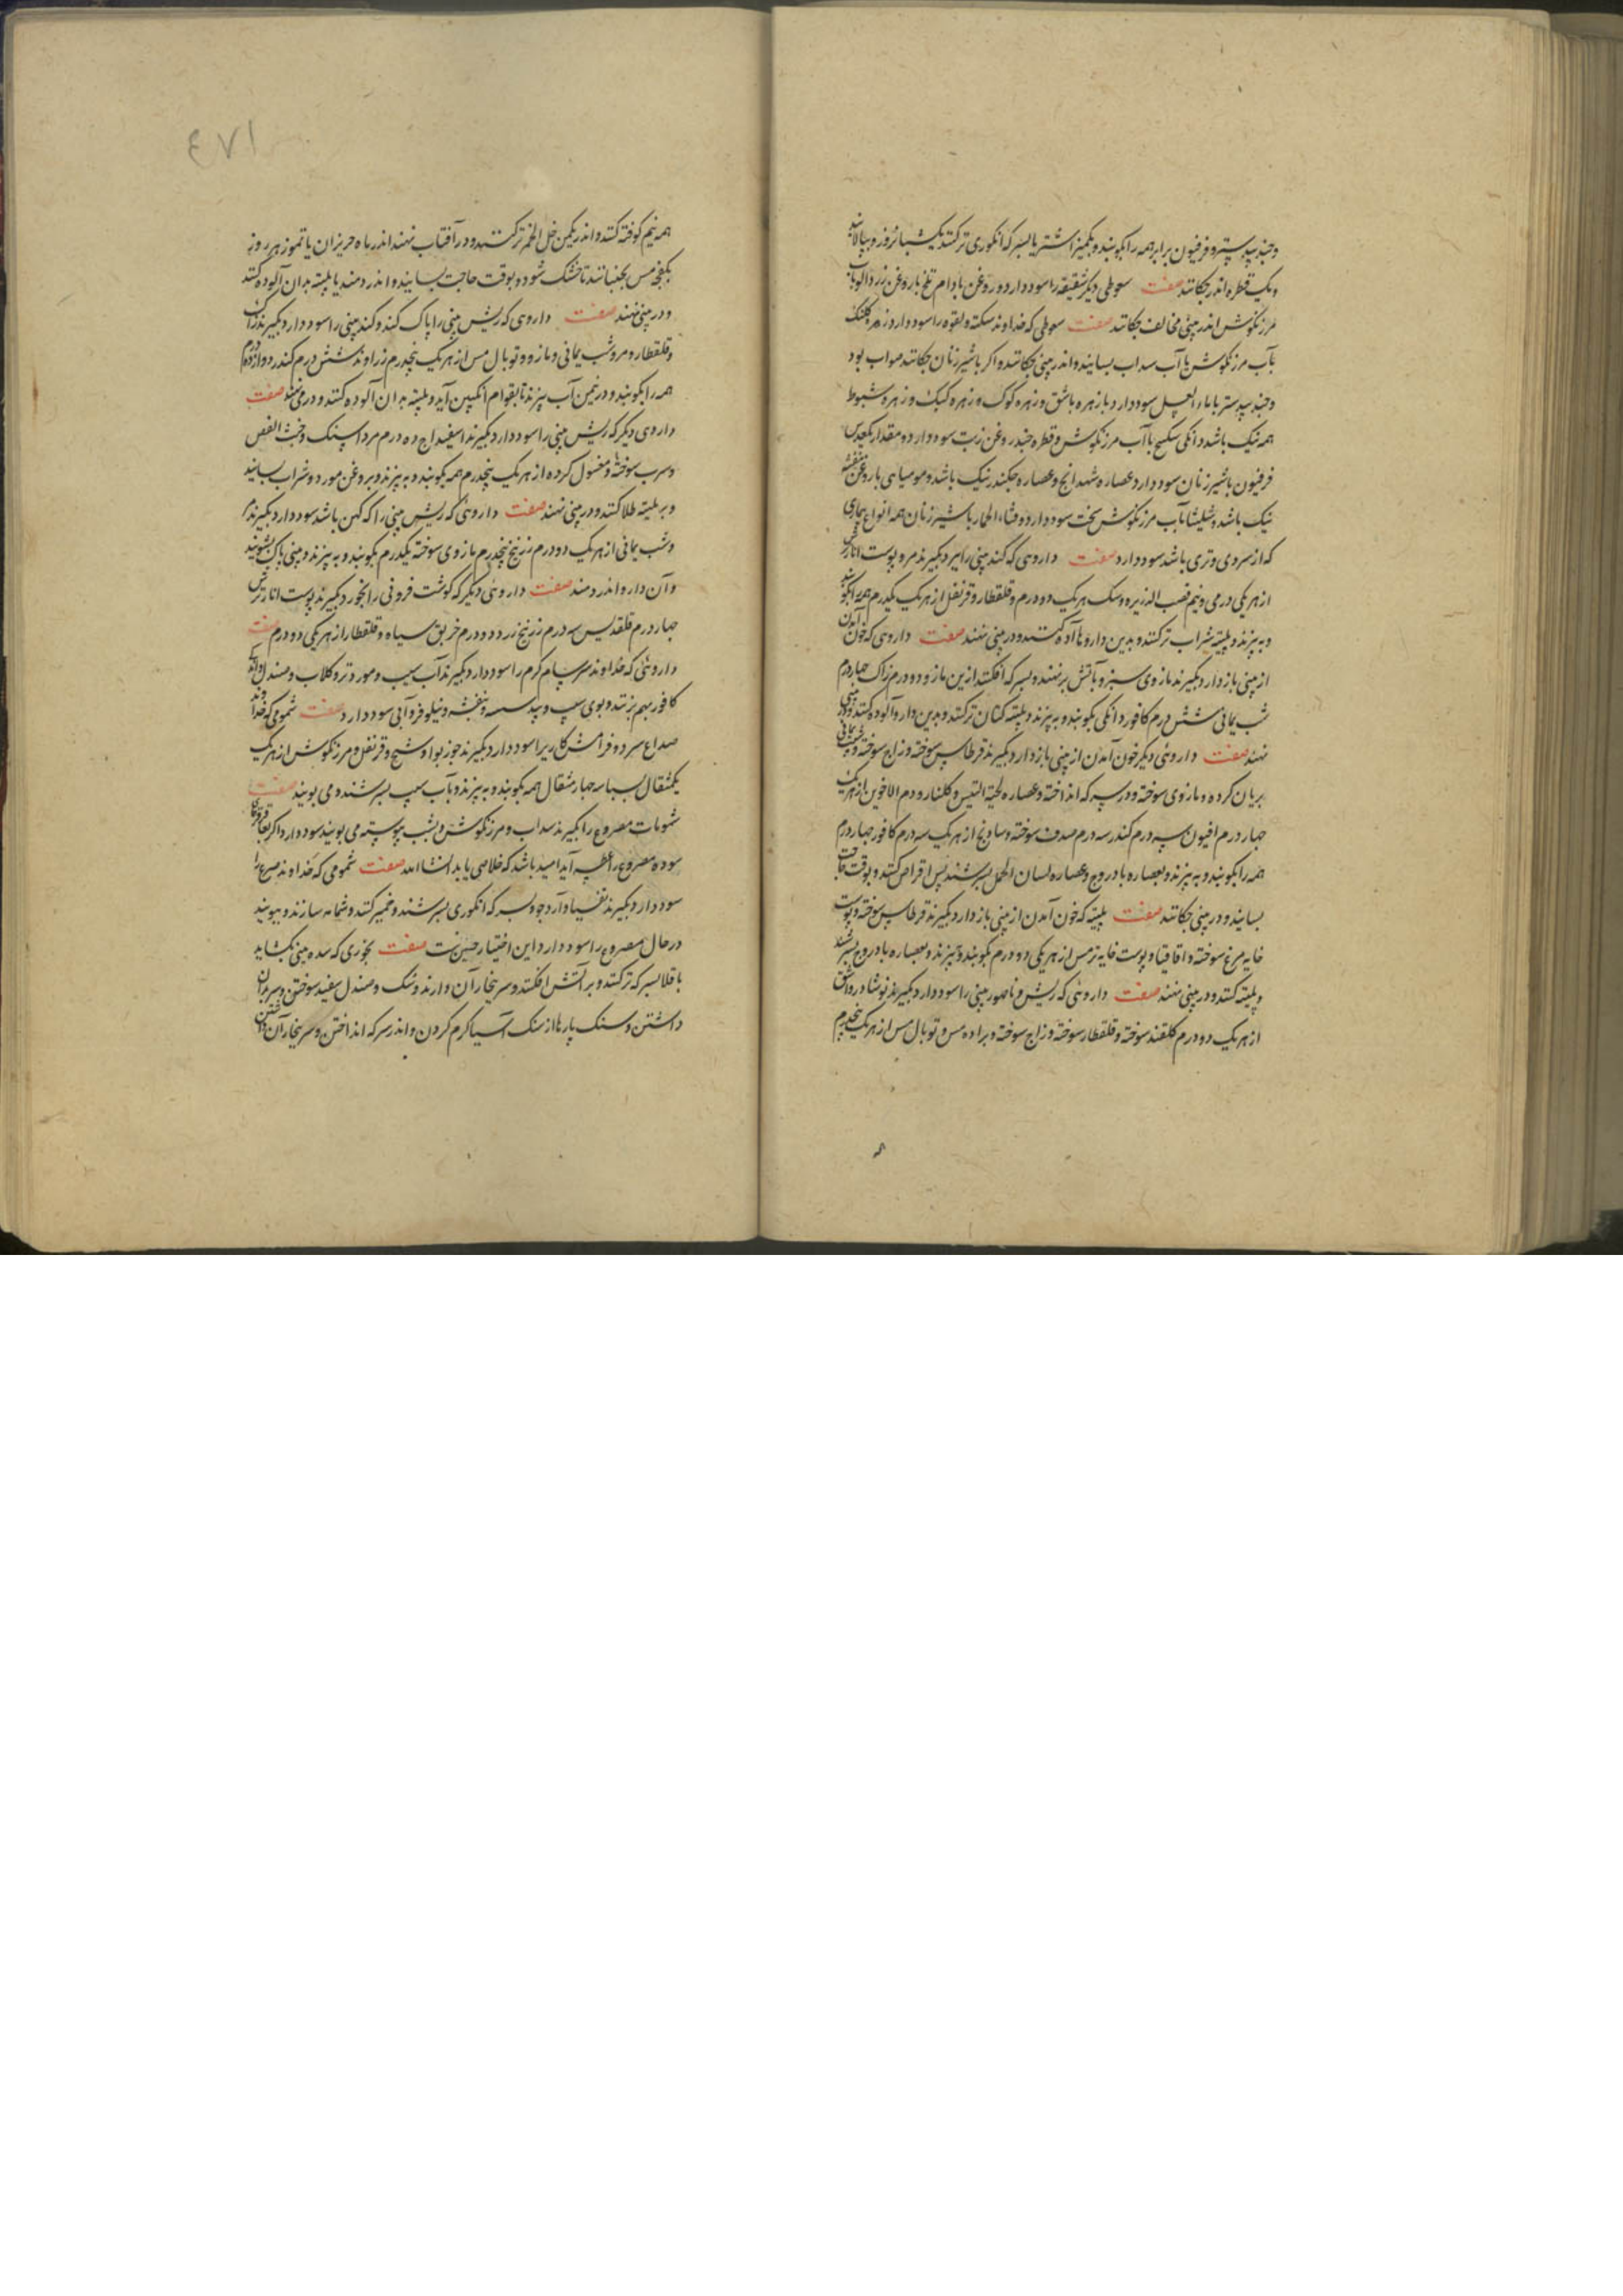 وجندبیدستر و فرفیون برابر همه را بکوبند و بکمیز اشتر یا بسرکه انکوری ترکنند یکشبانروز و بپالایند
و یک قطره اندر چکانند صفت سعوطی دیکر شقیقه را سود دارد روغن بادام تلخ با روغن زردالو بآب
مرزنکوش اندر بینی مخالف چکانند صفت سعوطی که خداوند سکته و لقوه را سود دارد زهره کلنک
بآب مرزنکوش یا آب سداب بسایند و اندر بینی چکانند و اکر با شیر زنان چکانند صواب بود
وجندبیدستر با ماء العسل سود دارد با زهره باشق و زهره کوک و زهره کبک و زهره شبوط
همه نیک باشد دانکی سکبینج با آب مرزنکوش و قطره چند روغن زیت سود دارد و مقدار یکعدس
فرفیون با شیر زنان سود دارد عصاره شهدانج و عصاره چکندر نیک باشد و مومیایی با روغن بنفشه
نیک باشد و شلیثا بآب مرزنکوش سخت سود دارد و قثاء الحمار با شیر زنان همه انواع بیماری
که از سردی و تری باشد سود دارد صفت داروی که کند بینی را ببرد بکیرند مر و پوست انار ترش
از هر یکی درمی و نیم قصب الذریره و سک هر یک دو درم و قلقطار و قرنفل از هر یک یکدرم همه را بکوبند
و به پزند و پلیته بشراب ترکنند و بدین داروها آلوده کنند و در بینی نهند صفت داروی که خون آمدن
از بینی باز دارد بکیرند مازوی سبز و بآتش برنهند و بسرکه افکنند ازین مازو دو درم زاک چهار درم
شب یمانی شش درم کافور دانکی بکوبند و به پزند و پلیته کتان ترکنند و بدین دارو آلوده کنند و در بینی
نهند صفت داروئی دیکر خون آمدن از بینی باز دارد بکیرند قرطاس سوخته و زاج سوخته و شب یمانی
بریان کرده و مازوی سوخته و در سرکه انداخته و عصاره لحیة التیس و کلنار و دم الاخوین از هر یک
چهار درم افیون سه درم کندر سه درم صدف سوخته و ساذج از هر یک سه درم کافور چهار درم
همه را بکوبند و به پزند و بعصاره بادروج و عصاره لسان الحمل بسرشند پس اقراص کنند و بوقت حاجت
بسایند و در بینی چکانند صفت پلیته که خون آمدن از بینی باز دارد بکیرند قرطاس سوخته و پوست
خایه مرغ سوخته و اقاقیا و پوست خایه ترمس از هر یکی دو درم بکوبند و به پزند و بعصاره بادروج بسرشند
و پلیته کنند و در بینی نهند صفت داروئی که ریش و ناصور بینی را سود دارد بکیرند نوشادر و اشق
از هر یک دو درم کلقند سوخته و قلقطار سوخته و زاج سوخته و براده مس و توبال مس از هر یک پنجدرم
٤٧١
همه نیم کوفته کنند و اندر یکمن خل الخمر ترکنند و در آفتاب نهند اندر ماه حزیران یا تموز هر روز
بکفچه مس بجنبانند تا خشک شود و بوقت حاجت بسایند و اندر دمند یا پلیته بدان آلوده کنند
و در بینی نهند صفت داروی که ریش بینی را پاک کند و کند بینی را سود دارد بکیرند زاک
و قلقطار و مر و شب یمانی و مازو و توبال مس از هر یک پنجدرم زراوند شش درم کندر دوازده درم
همه را بکوبند و در نیمن آب بپزند تا بقوام انکبین آید و پلیته بدان آلوده کنند و در می نهند صفت
داروی دیکر که ریش بینی را سود دارد بکیرند اسفیداج ده درم مرداسنک و خبث الفضه
و سرب سوخته و مغسول کرده از هر یک پنجدرم همه بکوبند و به پزند و بروغن مورد و شراب بسایند
و بر پلیته طلا کنند و در بینی نهند صفت داروئی که ریش بینی را که کهن باشد سود دارد بکیرند مر
و شب یمانی از هر یک دو درم زرنیخ پنجدرم مازوی سوخته یکدرم بکوبند و به پزند و بینی پاک بشویند
و آن دارو اندر دمند صفت داروئی دیکر که کوشت فزونی را بخورد بکیرند پوست انار ترش
چهار درم قلقدیس سه درم زرنیخ زرد دو درم خربق سیاه و قلقطار از هر یکی دو درم صفت
داروئی که خداوند سرسام کرم را سود دارد بکیرند آب سیب و مورد تر و کلاب و صندل و اندک
کافور بهم بزنند و بوی سیب و بید سده و بنفشه و نیلوفر و آبی سود دارد صفت شمومی که خداوند
صداع سرد و فرامشتکاری را سود دارد بکیرند جوزبوا و شیح و قرنفل و مرزنکوش از هر یک
یکمثقال بسباسه چهار مثقال همه بکوبند و به پزند و بآب سیب بسرشند و می بویند صفت
شمومات مصروع را بکیرند سداب و مرزنکوش و شبت پیوسته می بویند سود دارد و اکر بعاقرقرحا
سوده مصروع را عطسه آید امید باشد که خلاصی یابد انشاالله صفت شمومی که خداوند صرع را
سود دارد بکیرند تفسیا و آرد جو و بسرکه انکوری بسرشند و خمیر کنند و شمامه سازند و ببویند
در حال مصروع را سود دارد و این اختیار حنین است صفت بخوری که سده بینی بکشاید
باقلا بسرکه ترکنند و بر آتش افکنند و سر ببخار آن دارند و مشک و صندل سفید سوختن و سر بران
داشتن و سنک پارها از سنک آسیا کرم کردن و اندر سرکه انداختن و سر ببخار آن داشتن